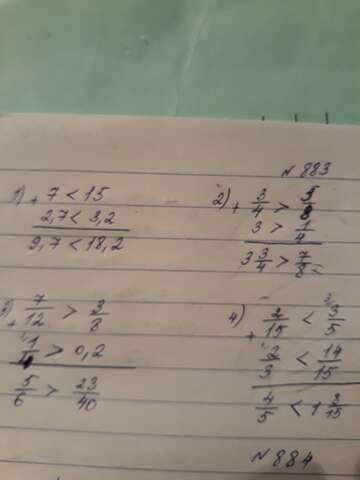 N 883
1) + 7 < 15
2,7 < 3,2
9,7 < 18,2
2) + 3/4 > 5/8
3 > 1/4
3 3/4 > 7/8
3) + 7/12 > 3/8
1/4 > 0,2
5/6 > 23/40
4) + 2/15 < 3/5
2/3 < 14/15
4/5 < 1 8/15
N 884